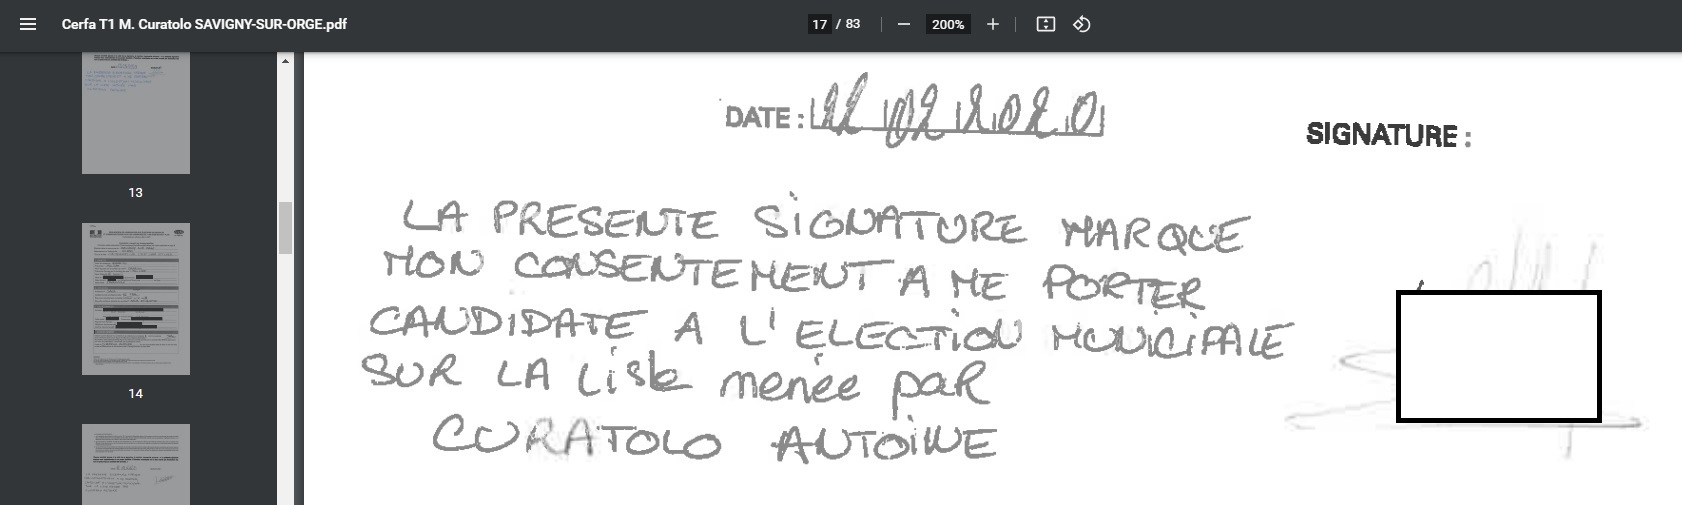 Cerfa T1 M. Curatolo SAVIGNY-SUR-ORGE.pdf
17 / 83
200%
13
14
DATE : 22 02 2020
SIGNATURE :
LA PRESENTE SIGNATURE MARQUE
MON CONSENTEMENT A ME PORTER
CANDIDATE A L'ELECTION MUNICIPALE
SUR LA Liste menée paR
CURATOLO ANTOINE